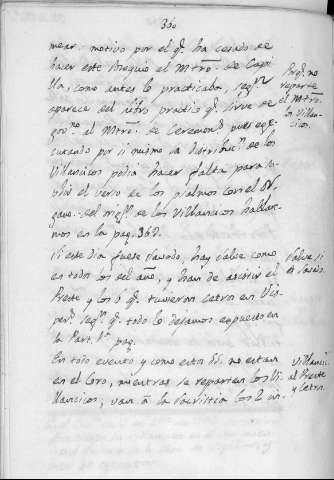 360
near: motivo por el q.e ha cesado de
hacer este obsequio el Mtro. de Capi-
lla, como antes lo practicaba, seg.n
aparece del libro practico q.e sirve de
gov.no al Mtro. de Ceremon.s pues exe-
cutando por si mismo la distribuc.n de los
Villancicos podia hacer falta para
el verso de los Psalmos con el Or-
gano. del de los Villancicos hablare-
mos en la pag. 367.
Si este dia fuese Savado, hay Salve como
en todos los del año, y han de asistir el
Preste y los q.e tuvieron Cetro en Vis-
per.s seg.n q.e todo lo dejamos expuesto en
la Part. 1.a pag.
En todo evento y como estos SS. no estan
en el Coro, mientras se reparten los Vi-
llancicos, van a la Sacristia los
Porq.e no
reparte
el Mtro.
los Villan-
cicos.
Salve si
es Savado.
Villancic.
al Preste
y Cetros.